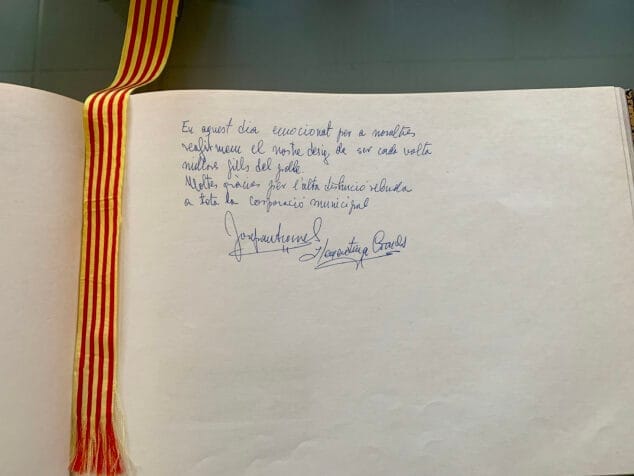 En aquest dia emocionat per a nosaltres
reafirmem el nostre desig de ser cada volta
millors fills del poble.
Moltes gràcies per l'alta distinció rebuda
a tota la corporació municipal